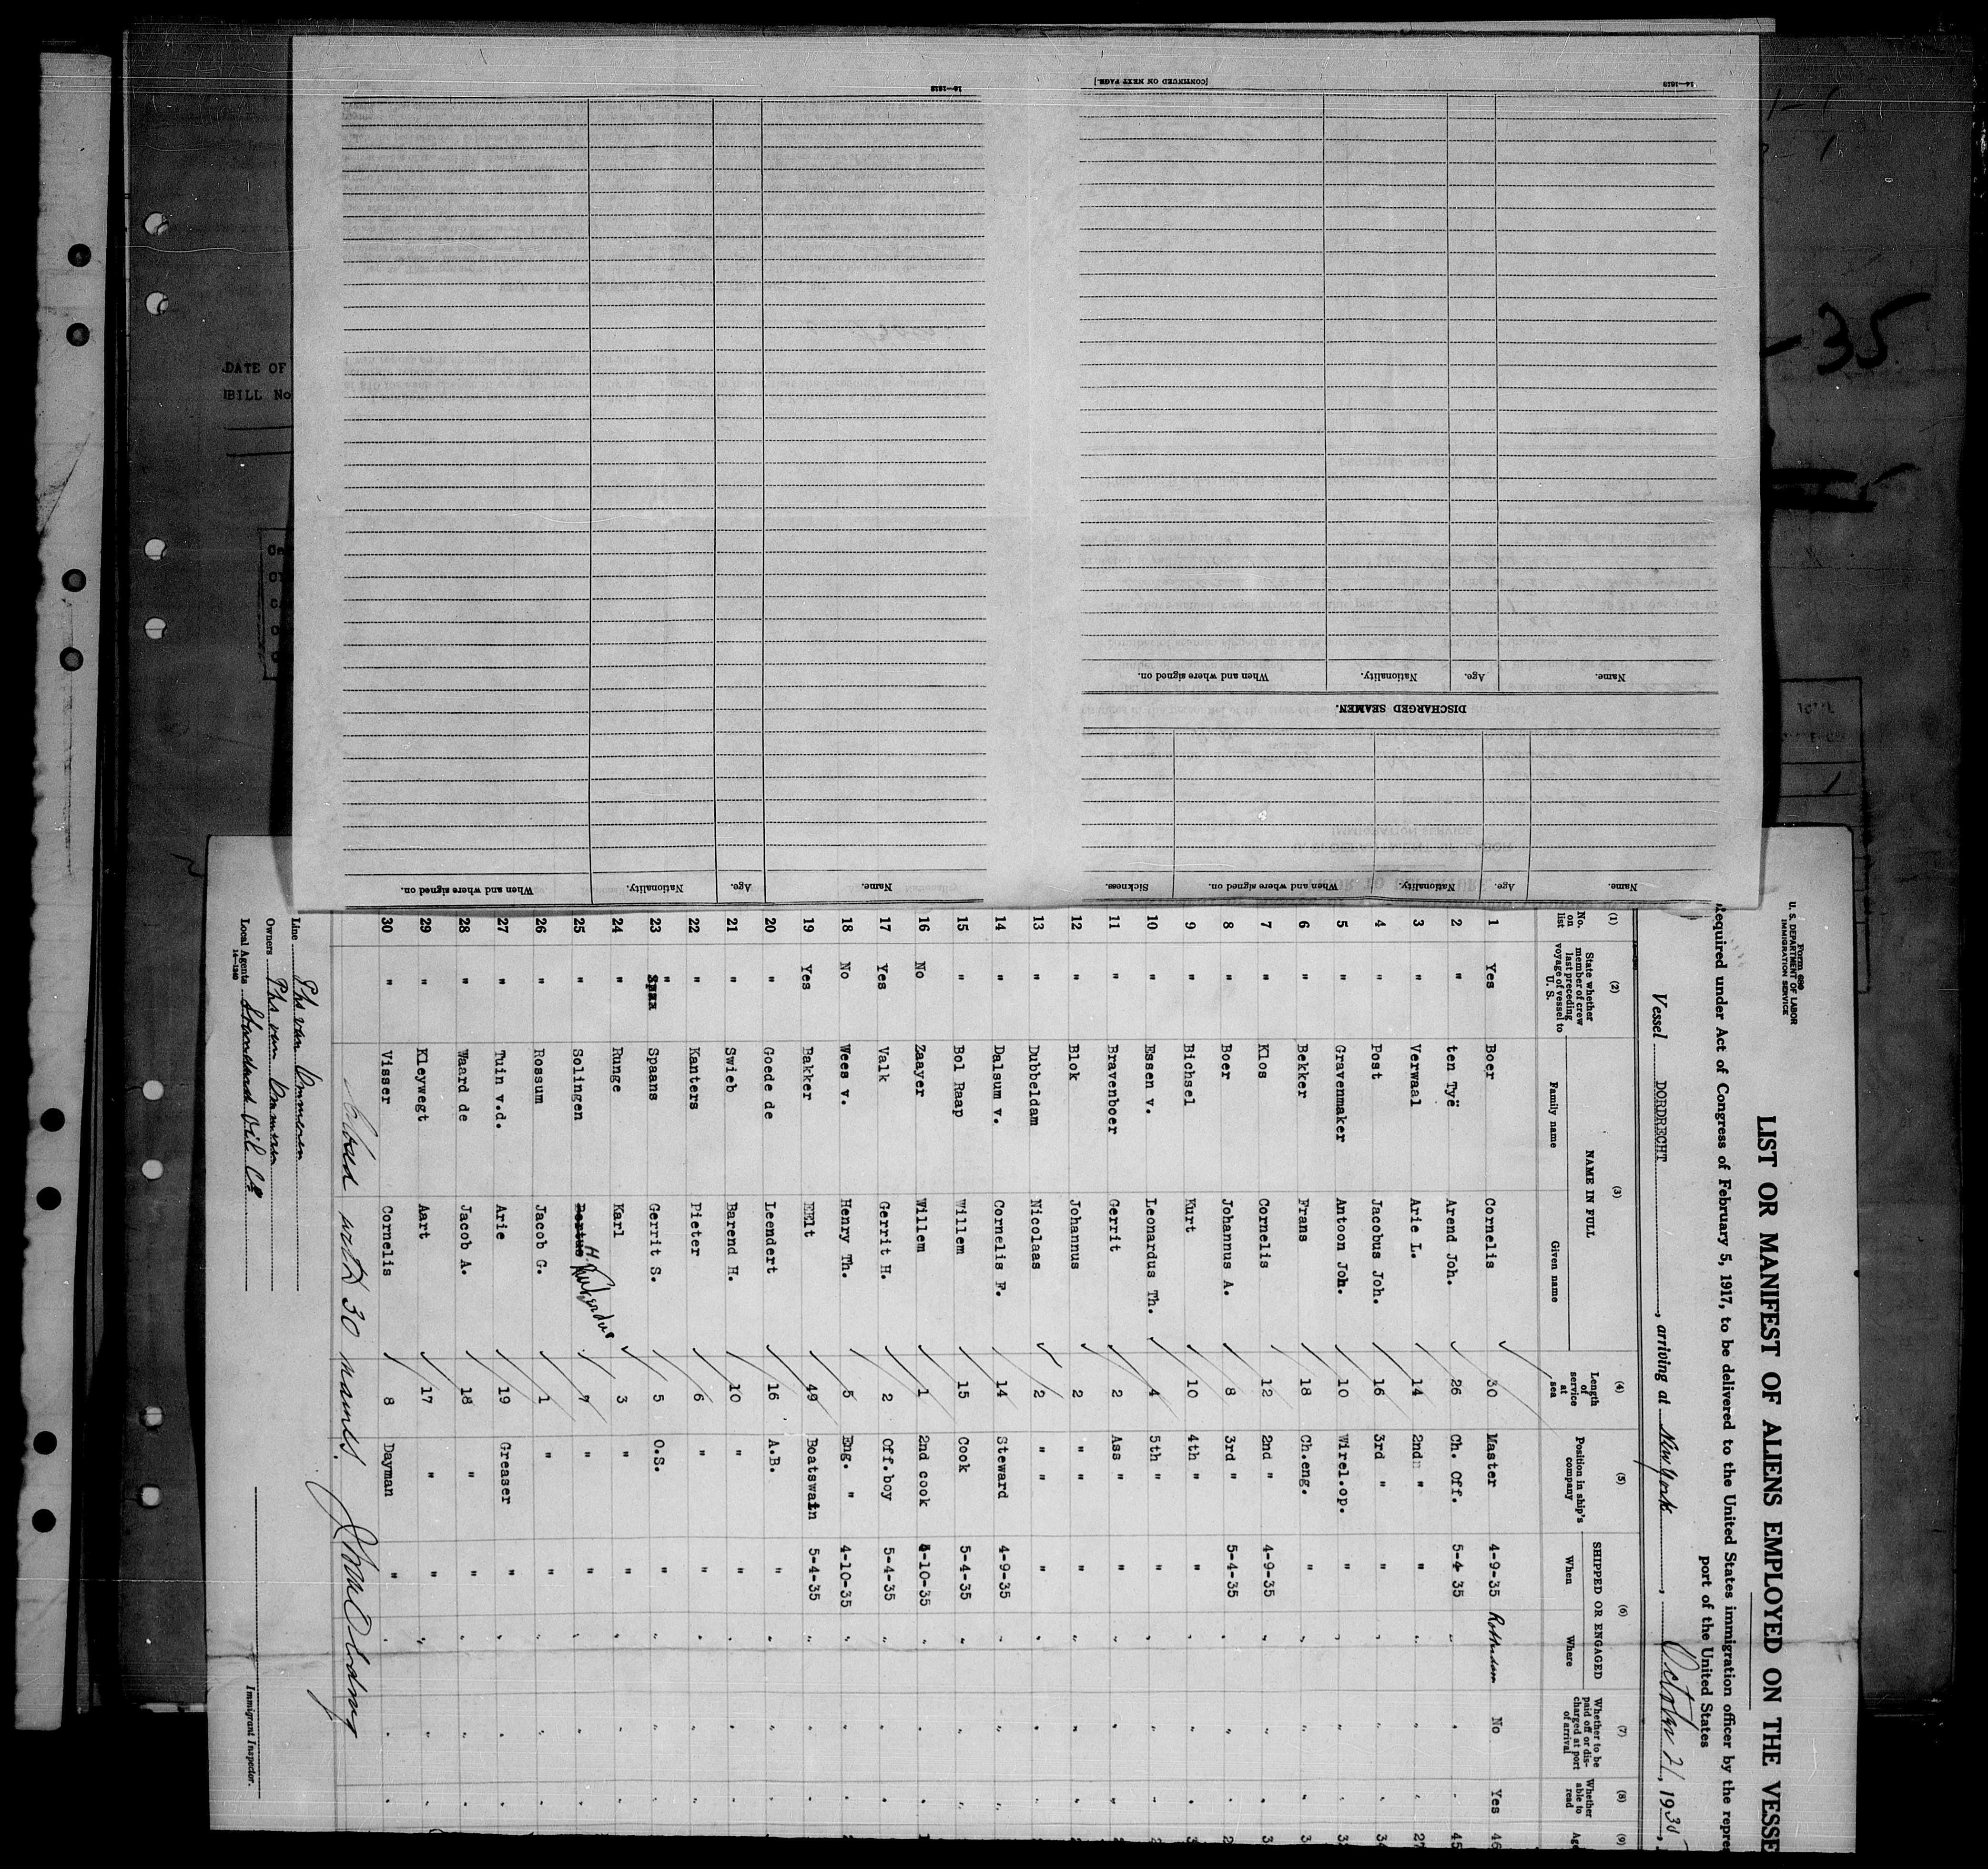 -35
DATE OF
BILL No
[CONTINUED ON NEXT PAGE.]
14—1813
Name. Age. Nationality. When and where signed on.
DISCHARGED SEAMEN.
Name. Age. Nationality. When and where signed on. Sickness.
Name. Age. Nationality. When and where signed on.
Form 689
U. S. DEPARTMENT OF LABOR
IMMIGRATION SERVICE
LIST OR MANIFEST OF ALIENS EMPLOYED ON THE VESSE
Required under Act of Congress of February 5, 1917, to be delivered to the United States immigration officer by the repre
port of the United States
Vessel DORDRECHT, arriving at New York, October 21, 1935,
(1) (2) (3) (4) (5) (6) (7) (8) (9)
No. on list State whether member of crew last preceding voyage of vessel to U. S. NAME IN FULL Family name Given name Length of service at sea Position in ship's company SHIPPED OR ENGAGED When Where Whether to be paid off or discharged at port of arrival Whether able to read Age
1 Yes Boer Cornelis 30 Master 4-9-35 Rotterdam No Yes 46
2 " ten Tyë Arend Joh. 26 Ch. Off. 5-4 35 " " " 45
3 " Verwaal Arie L. 14 2nd " " " " " 27
4 " Post Jacobus Joh. 16 3rd " " " " " 34
5 " Gravenmaker Antoon Joh. 10 Wirel.op. " " " "
6 " Bekker Frans 18 Ch.eng. " " " "
7 " Klos Cornelis 12 2nd " 4-9-35 " " "
8 " Boer Johannus A. 8 3rd " 5-4-35 " " "
9 " Bichsel Kurt 10 4th " " " " "
10 " Essen v. Leonardus Th. 4 5th " " " " "
11 " Bravenboer Gerrit 2 Ass " " " " "
12 " Blok Johannus 2 " " " " " "
13 " Dubbeldam Nicolaas 2 " " " " " "
14 " Dalsum v. Cornelis F. 14 Steward 4-9-35 " " "
15 " Bol Raap Willem 15 Cook 5-4-35 " " "
16 No Zaayer Willem 1 2nd cook 4-10-35 " " "
17 Yes Valk Gerrit H. 2 Off.boy 5-4-35 " " "
18 No Wees v. Henry Th. 5 Eng. " 4-10-35 " " "
19 Yes Bakker EElt 49 Boatswain 5-4-35 " " "
20 " Goede de Leendert 16 A.B. " " " "
21 " Swieb Barend H. 10 " " " " "
22 " Kanters Pieter 6 " " " " "
23 " Spaans Gerrit S. 5 O.S. " " " "
24 " Runge Karl 3 " " " " "
25 " Solingen H. 7 " " " " "
26 " Rossum Jacob G. 1 " " " " "
27 " Tuin v.d. Arie 19 Greaser " " " "
28 " Waard de Jacob A. 18 " " " " "
29 " Kleywegt Aart 17 " " " " "
30 " Visser Cornelis 8 Dayman " " " "
Closed with 30 names.
Line Phs van Ommeren
Owners Phs van Ommeren
Local Agents Standard Oil Co
14—1240
Immigrant Inspector.